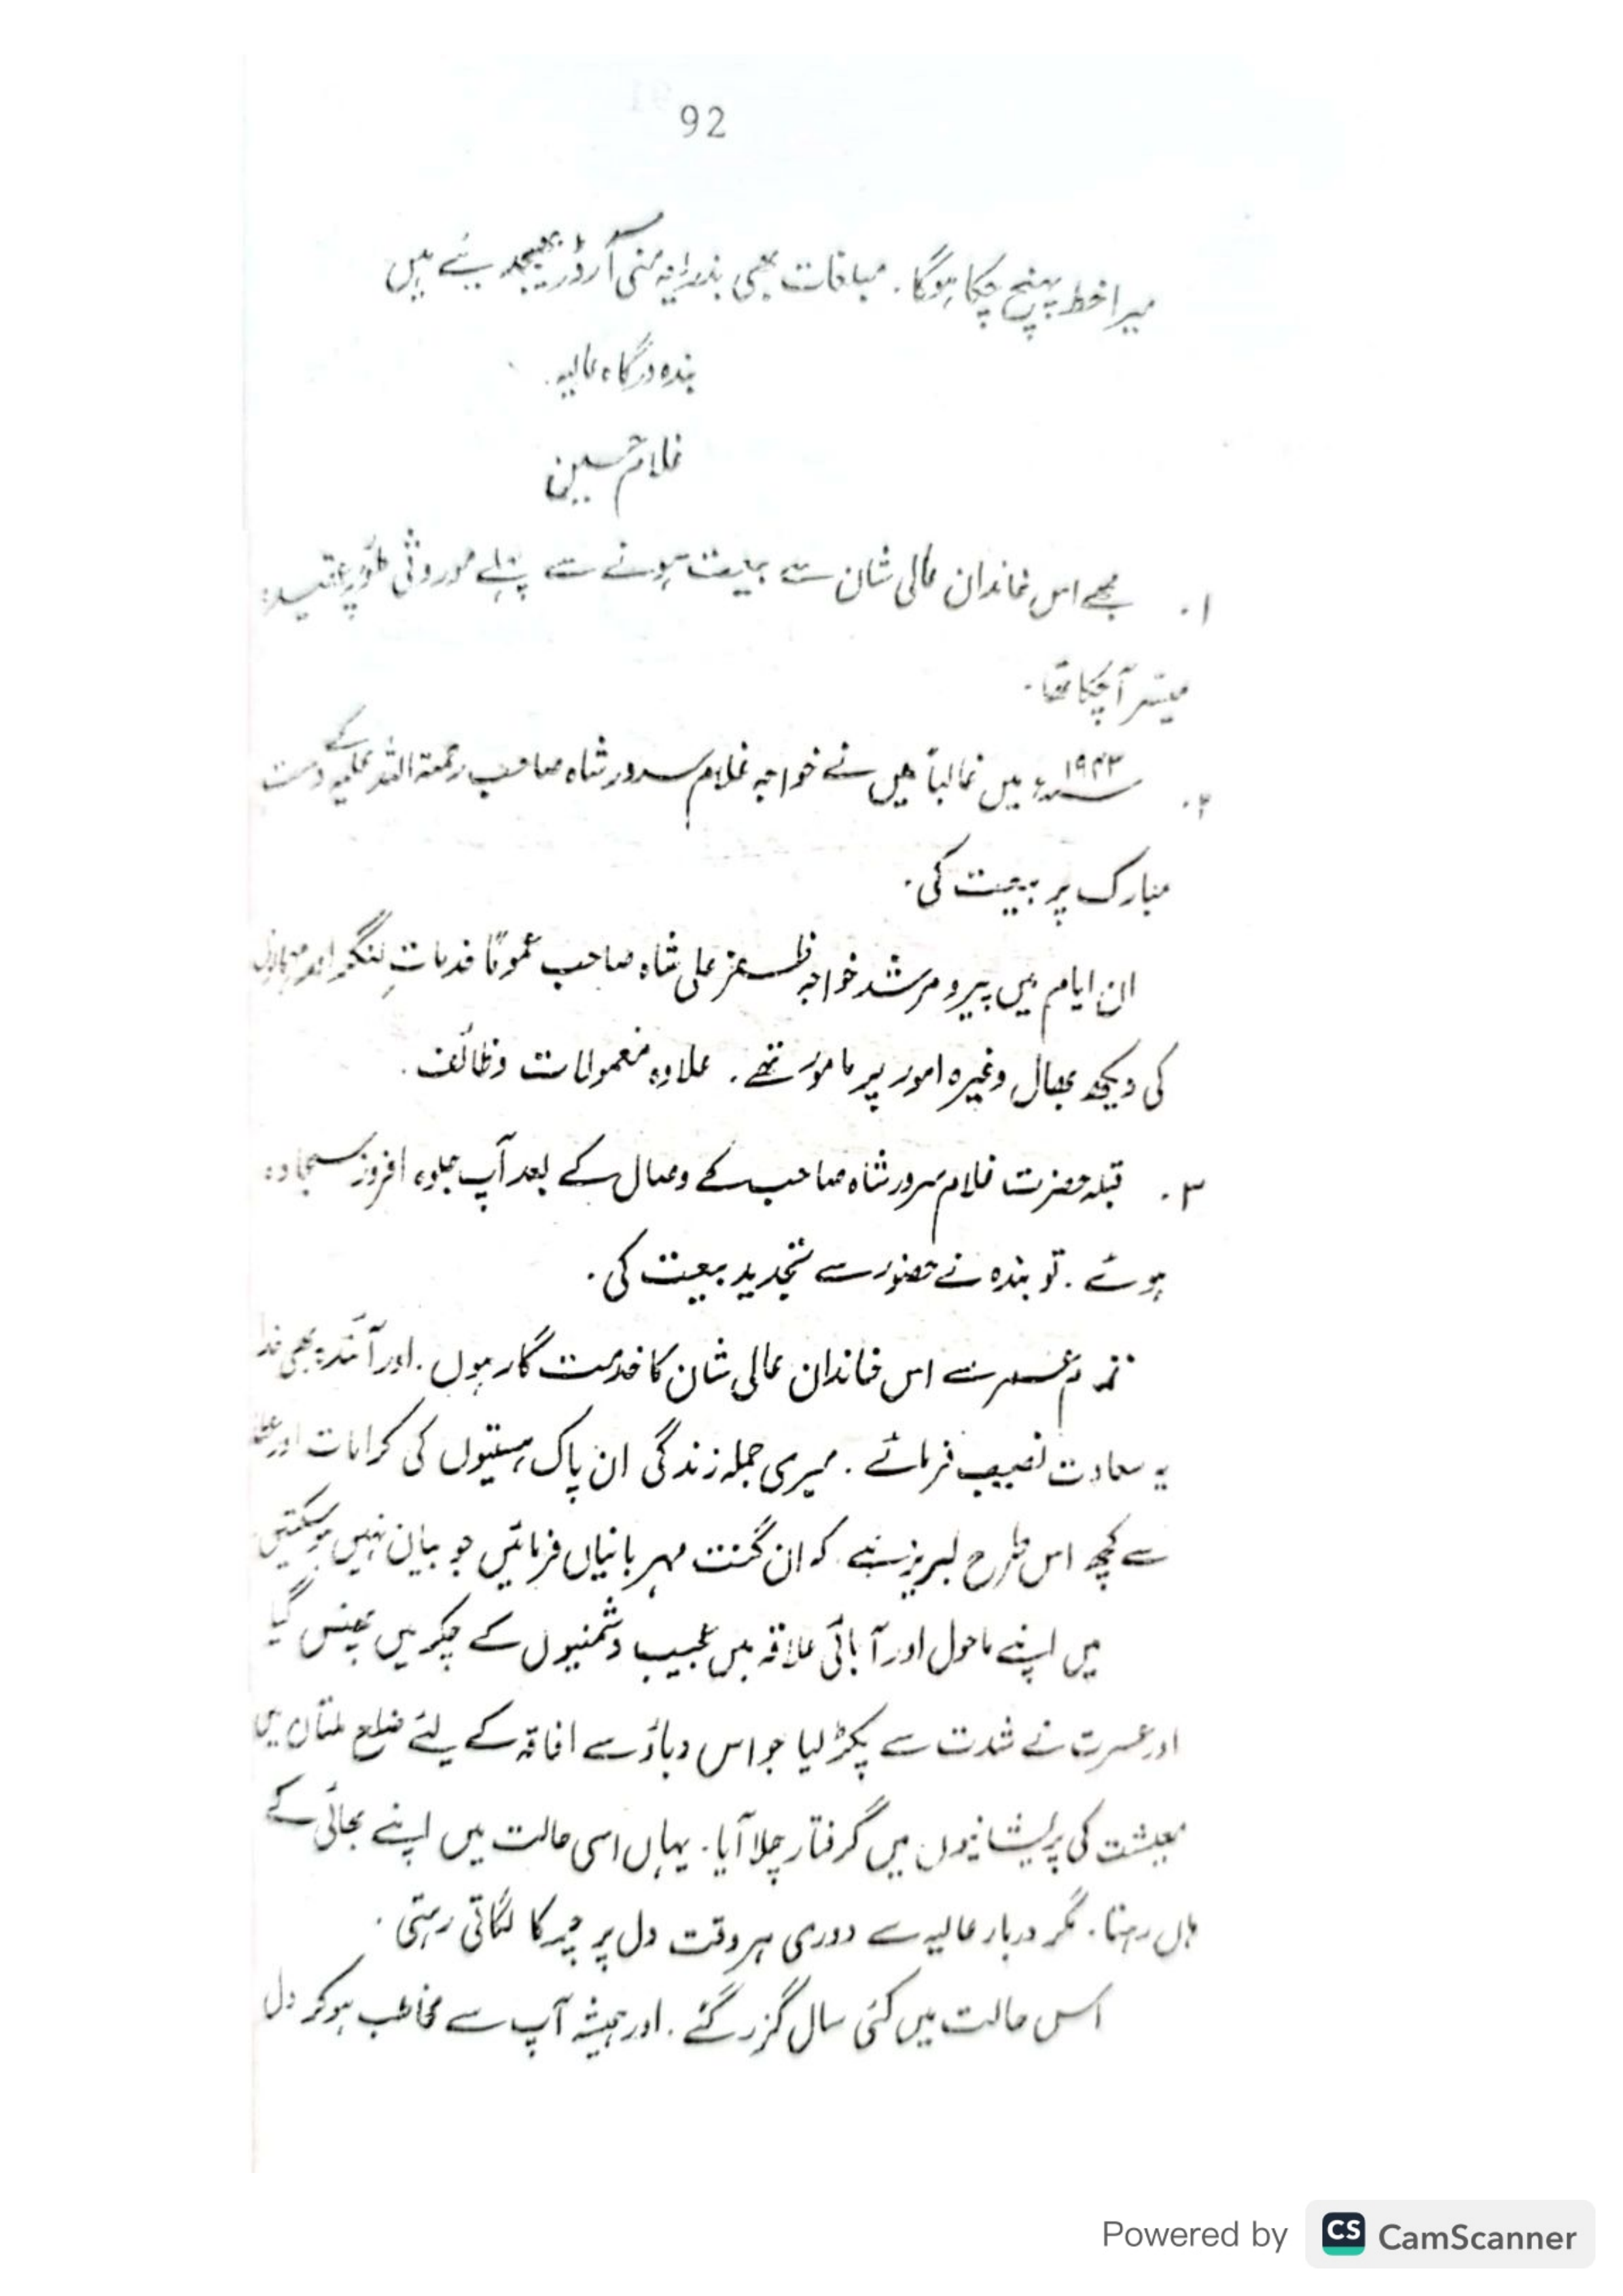 92
میرا خط پہنچ چکا ہوگا. مبلغات بھی بذریعہ منی آرڈر بھیجد یئے ہیں
بندہ درگاہ عالیہ.
غلام حسین
۱. مجھے اس خاندان عالی شان سے بیعت ہونے سے پہلے موروثی طور پر عقیدہ
میسّر آچکا تھا.
۲. ۱۹۴۳ء میں غالباً میں نے خواجہ غلام سرور شاہ صاحب رحمۃ اللہ علیہ کے دست
مبارک پر بیعت کی.
ان ایام میں پیر و مرشد خواجہ ظفر علی شاہ صاحب عموماً خدماتِ لنگر اور
کی دیکھ بھال وغیرہ امور پر مامور تھے. علاوہ معمولات وظائف.
۳. قبلہ حضرت غلام سرور شاہ صاحب کے وصال کے بعد آپ جلوہ افروز سجادہ
ہوئے. تو بندہ نے حضور سے تجدید بیعت کی.
سے اس خاندان عالی شان کا خدمت گار ہوں. اور آئندہ بھی خدا
یہ سعادت نصیب فرمائے. میری جملہ زندگی ان پاک ہستیوں کی کرامات اور
سے کچھ اس طرح لبریز ہے کہ ان گنت مہربانیاں فرمائیں جو بیان نہیں ہوسکتیں
میں اپنے ماحول اور آبائی علاقہ میں عجیب دشمنیوں کے چکر میں پھنس گیا
اور عسرت نے شدت سے پکڑ لیا جو اس دباؤ سے افاقہ کے لئے ضلع ملتان میں
معیشت کی پریشانیوں میں گرفتار چلا آیا. یہاں اسی حالت میں اپنے بھائی کے
ہاں رہنا. مگر دربار عالیہ سے دوری ہر وقت دل پر چرکا لگاتی رہتی.
اس حالت میں کئی سال گزر گئے. اور ہمیشہ آپ سے مخاطب ہوکر دل
Powered by CS CamScanner